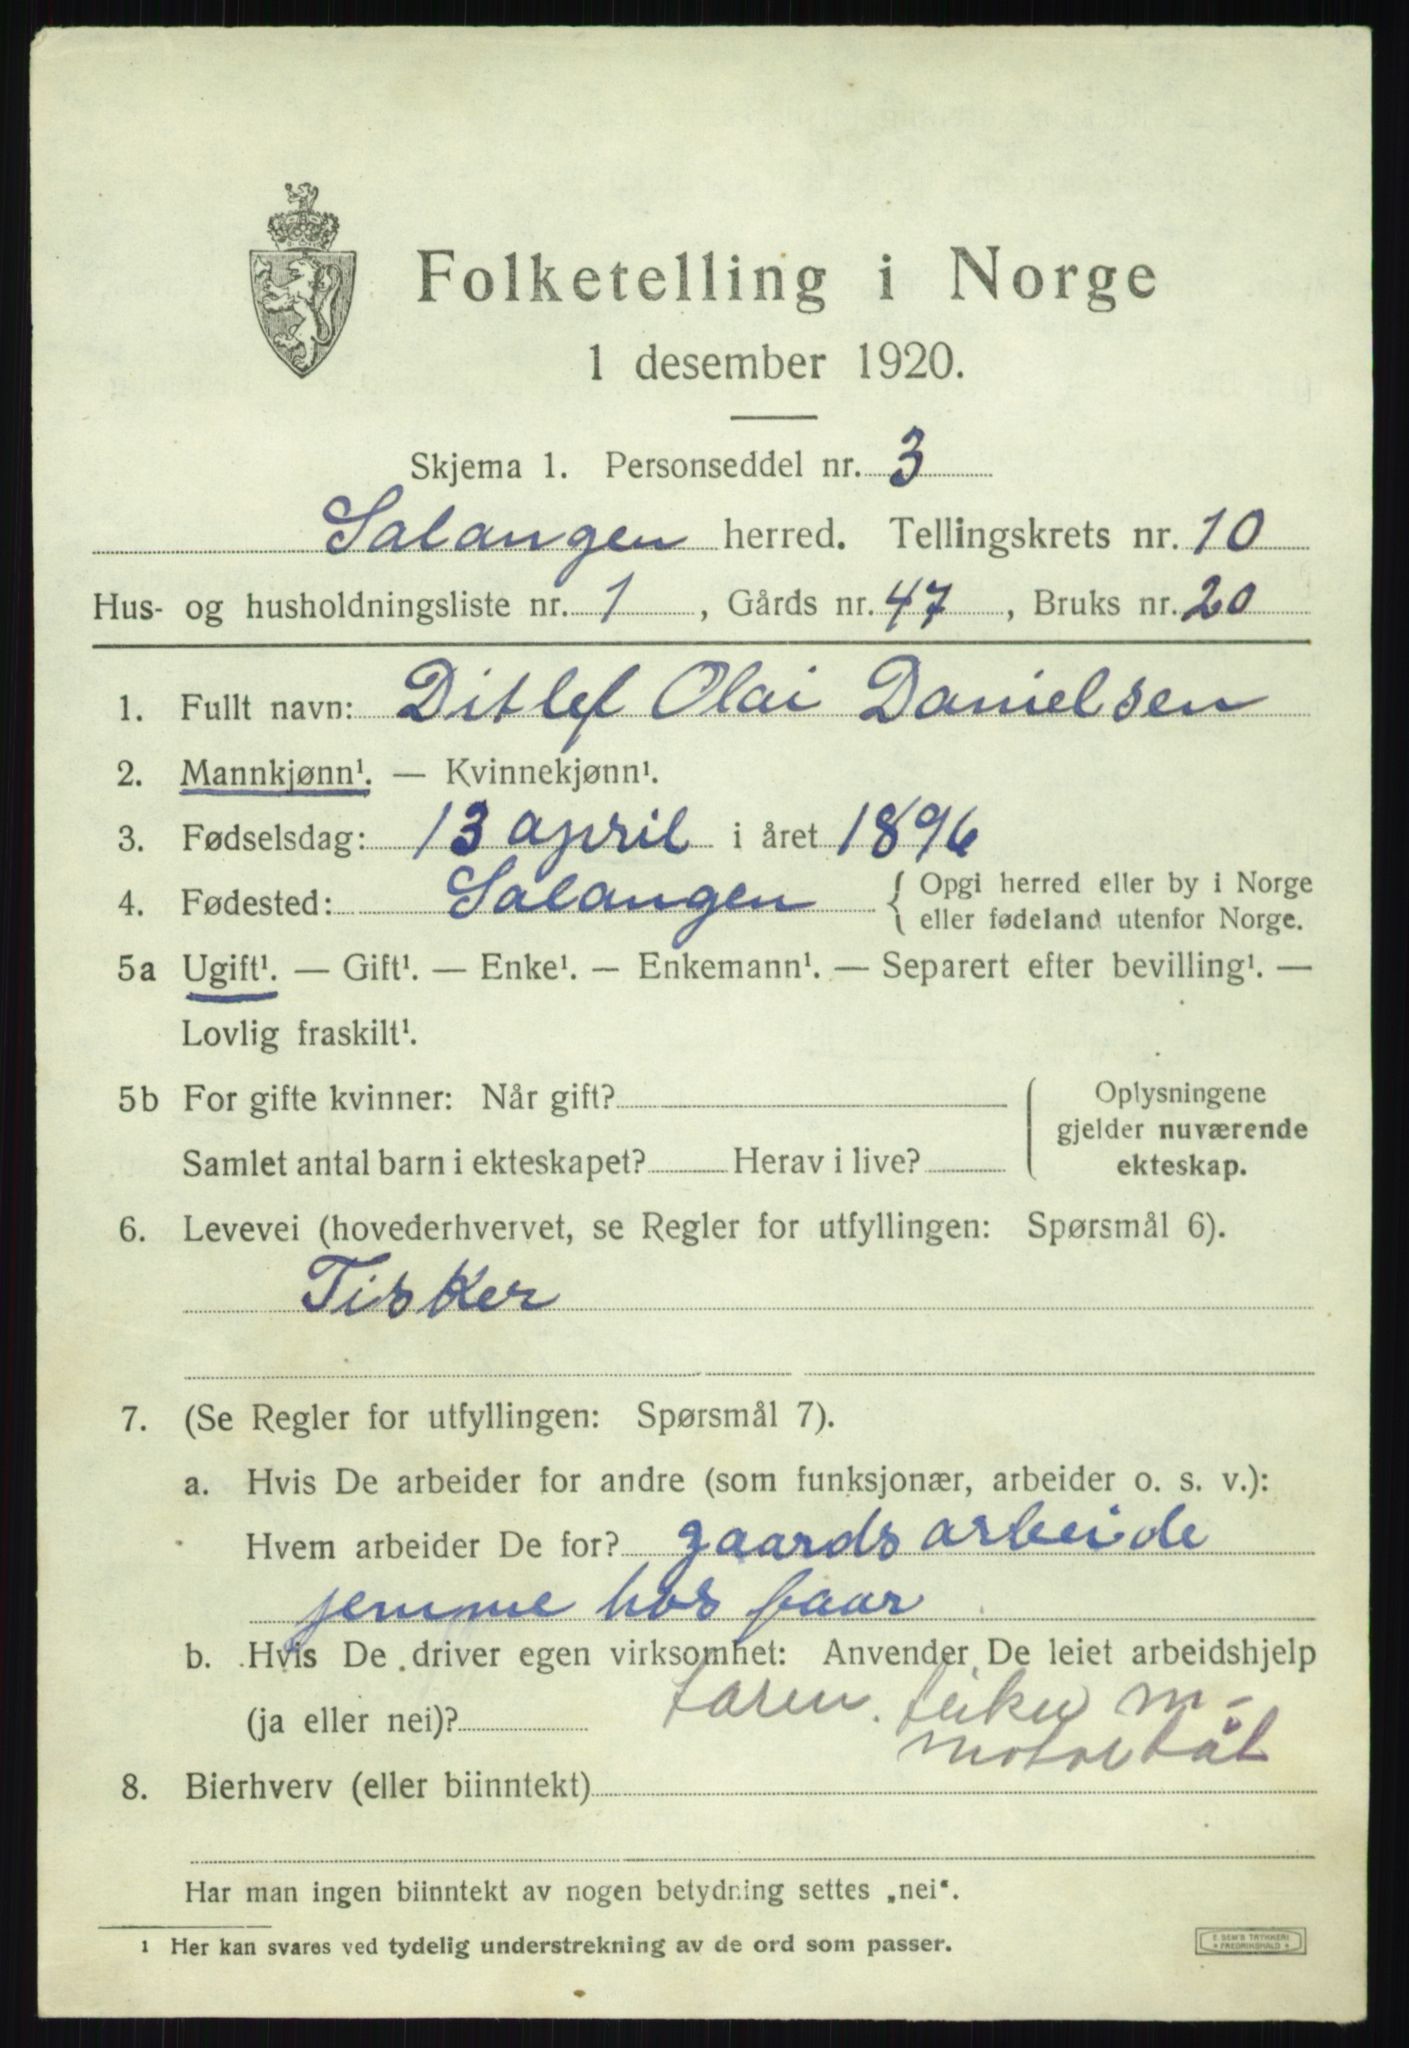 Folketelling i Norge
1 desember 1920.
Skjema 1. Personseddel nr. 3
Salangen herred. Tellingskrets nr. 10
Hus- og husholdningsliste nr. 1, Gårds nr. 47, Bruks nr. 20
1. Fullt navn: Ditlef Olai Danielsen
2. Mannkjønn¹. — Kvinnekjønn¹.
3. Fødselsdag: 13 april i året 1896
4. Fødested: Salangen { Opgi herred eller by i Norge
eller fødeland utenfor Norge.
5a Ugift¹. — Gift¹. — Enke¹. — Enkemann¹. — Separert efter bevilling¹. —
Lovlig fraskilt¹.
5b For gifte kvinner: Når gift?
Samlet antal barn i ekteskapet? Herav i live?
Oplysningene
gjelder nuværende
ekteskap.
6. Levevei (hovederhvervet, se Regler for utfyllingen: Spørsmål 6).
Fisker
7. (Se Regler for utfyllingen: Spørsmål 7).
a. Hvis De arbeider for andre (som funksjonær, arbeider o. s. v.):
Hvem arbeider De for? gaardsarbeide
jemme hos faar
b. Hvis De driver egen virksomhet: Anvender De leiet arbeidshjelp
(ja eller nei)?
faren. fisker m-
motorbåt
8. Bierhverv (eller biinntekt)
Har man ingen biinntekt av nogen betydning settes „nei“.
¹ Her kan svares ved tydelig understrekning av de ord som passer.
E. SEM'S TRYKKERI
FREDRIKSHALD